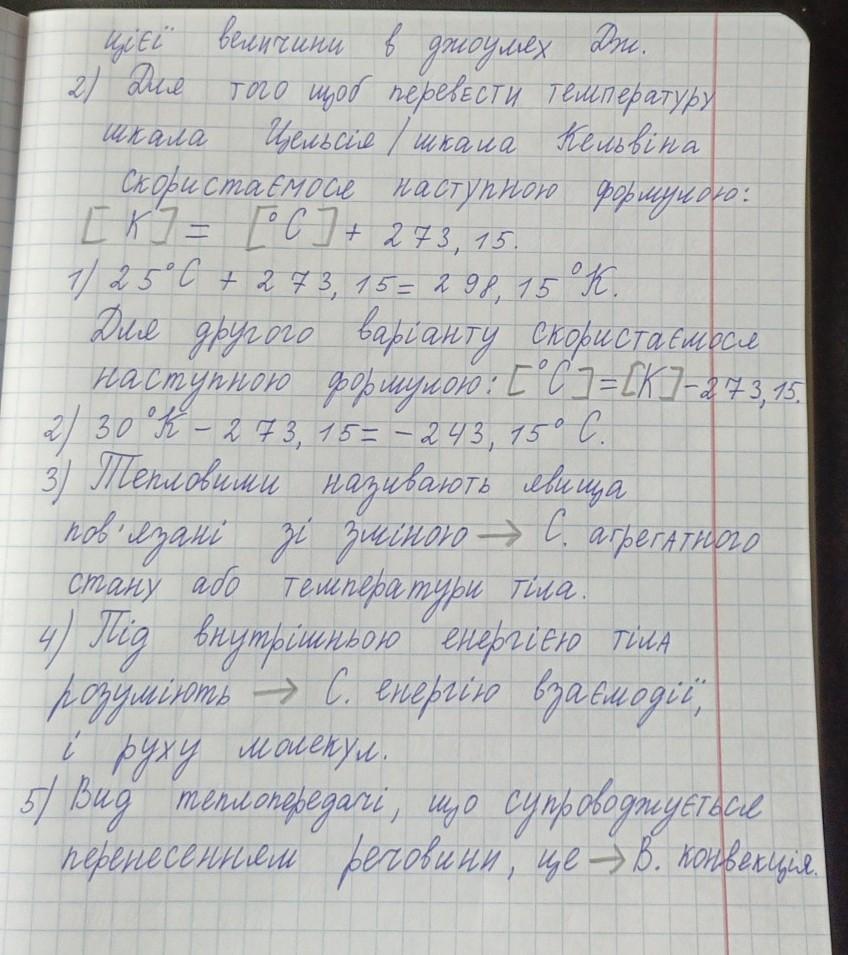 цієї величини в джоулях Дж.
2) Для того щоб перевести температуру
шкала Цельсія / шкала Кельвіна
скористаємося наступною формулою:
[К] = [°С] + 273,15.
1) 25°С + 273,15 = 298,15 °К.
Для другого варіанту скористаємося
наступною формулою: [°С] = [К] - 273,15.
2) 30°К - 273,15 = - 243,15° С.
3) Тепловими називають явища
пов'язані зі зміною → С. агрегатного
стану або температури тіла.
4) Під внутрішньою енергією тіла
розуміють → С. енергію взаємодії,
і руху молекул.
5) Вид теплопередачі, що супроводжується
перенесенням речовини, це → В. конвекція.